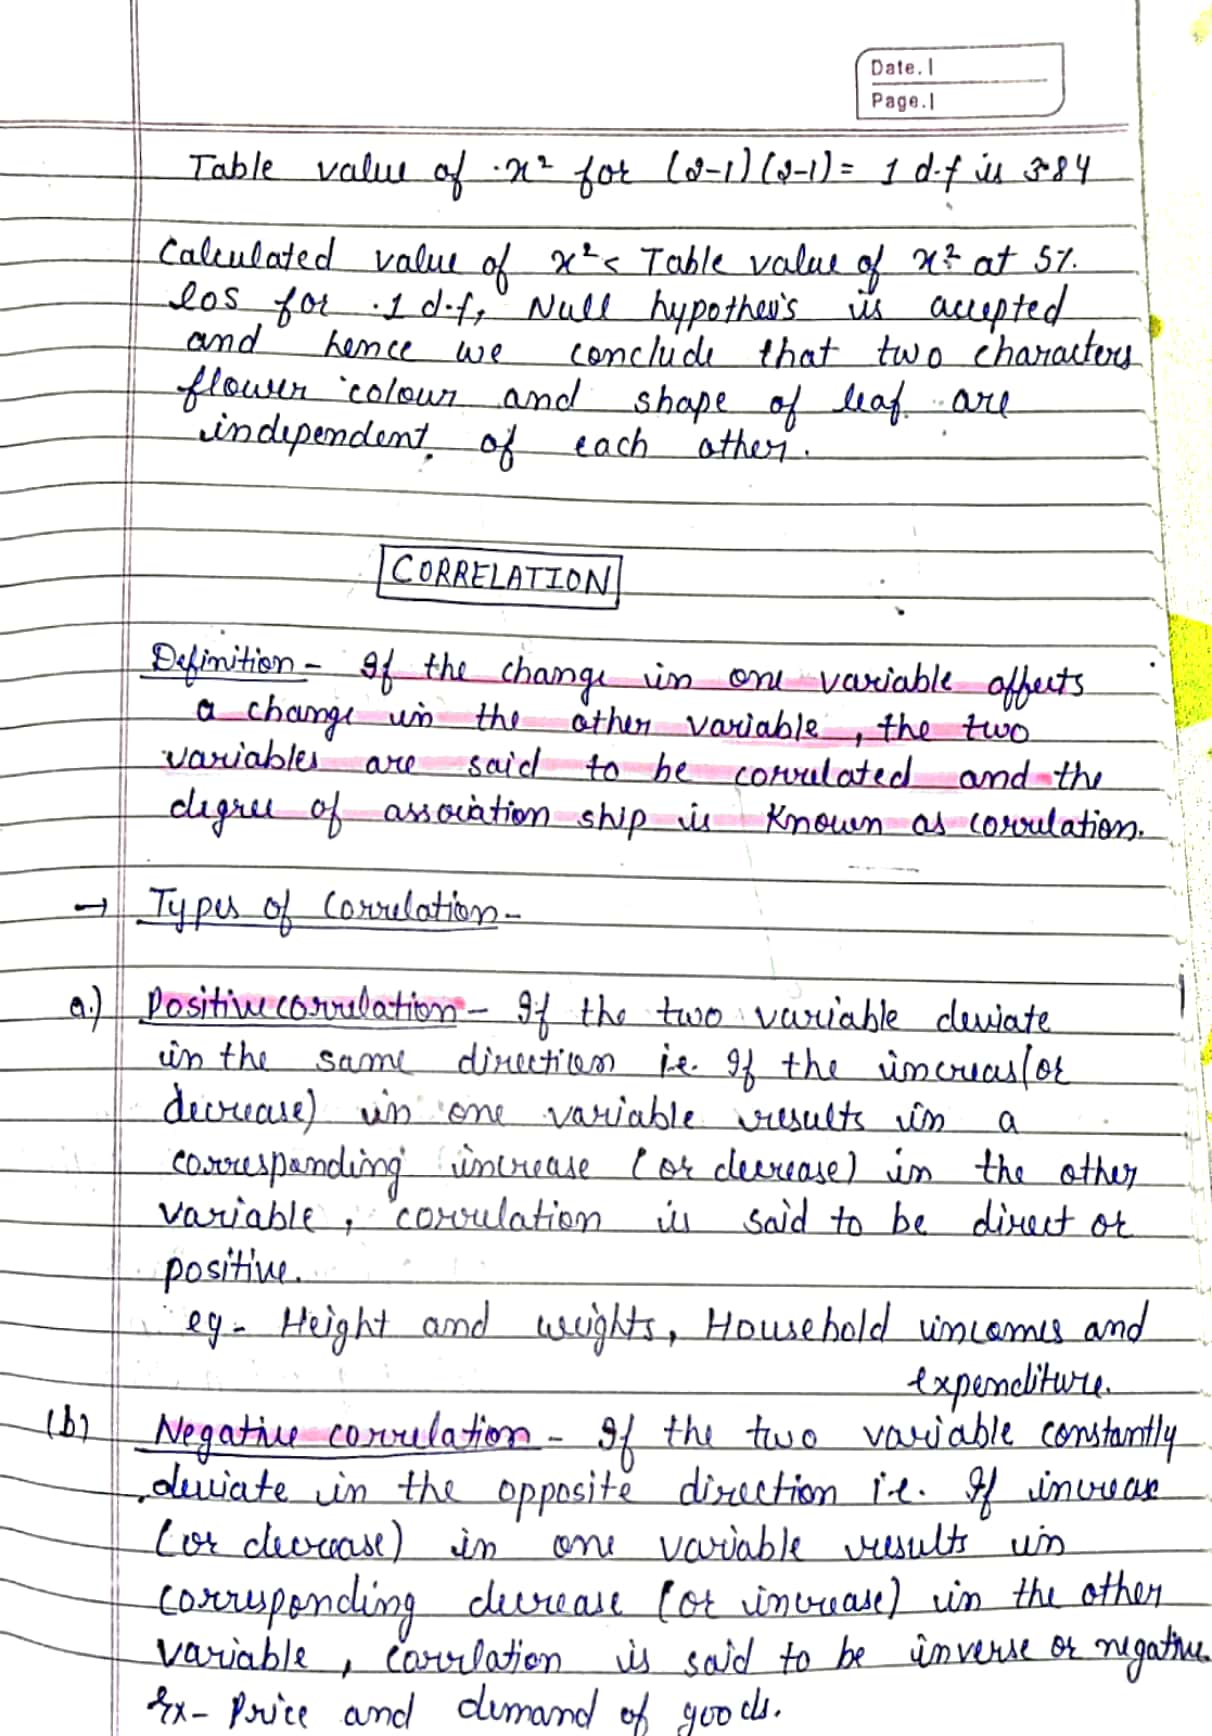 Date.
Page.
Table value of x² for (2-1)(2-1) = 1 d.f is 3.84
Calculated value of x² < Table value of x² at 5%
los for 1 d.f, Null hypothesis is accepted
and hence we conclude that two characters
flower colour and shape of leaf are
independent of each other.
CORRELATION
Definition - If the change in one variable affects
a change in the other variable, the two
variables are said to be correlated and the
degree of association ship is known as correlation.
→ Types of Correlation -
a.) Positive correlation - If the two variable deviate
in the same direction i.e. If the increas (or
decrease) in one variable results in a
corresponding increase (or decrease) in the other
variable, correlation is said to be direct or
positive.
eg - Height and weights, Household incomes and
expenditure.
(b) Negative correlation - If the two variable constantly
deviate in the opposite direction i.e. If increase
(or decrease) in one variable results in
corresponding decrease (or increase) in the other
variable, correlation is said to be inverse or negative.
Ex - Price and demand of goods.